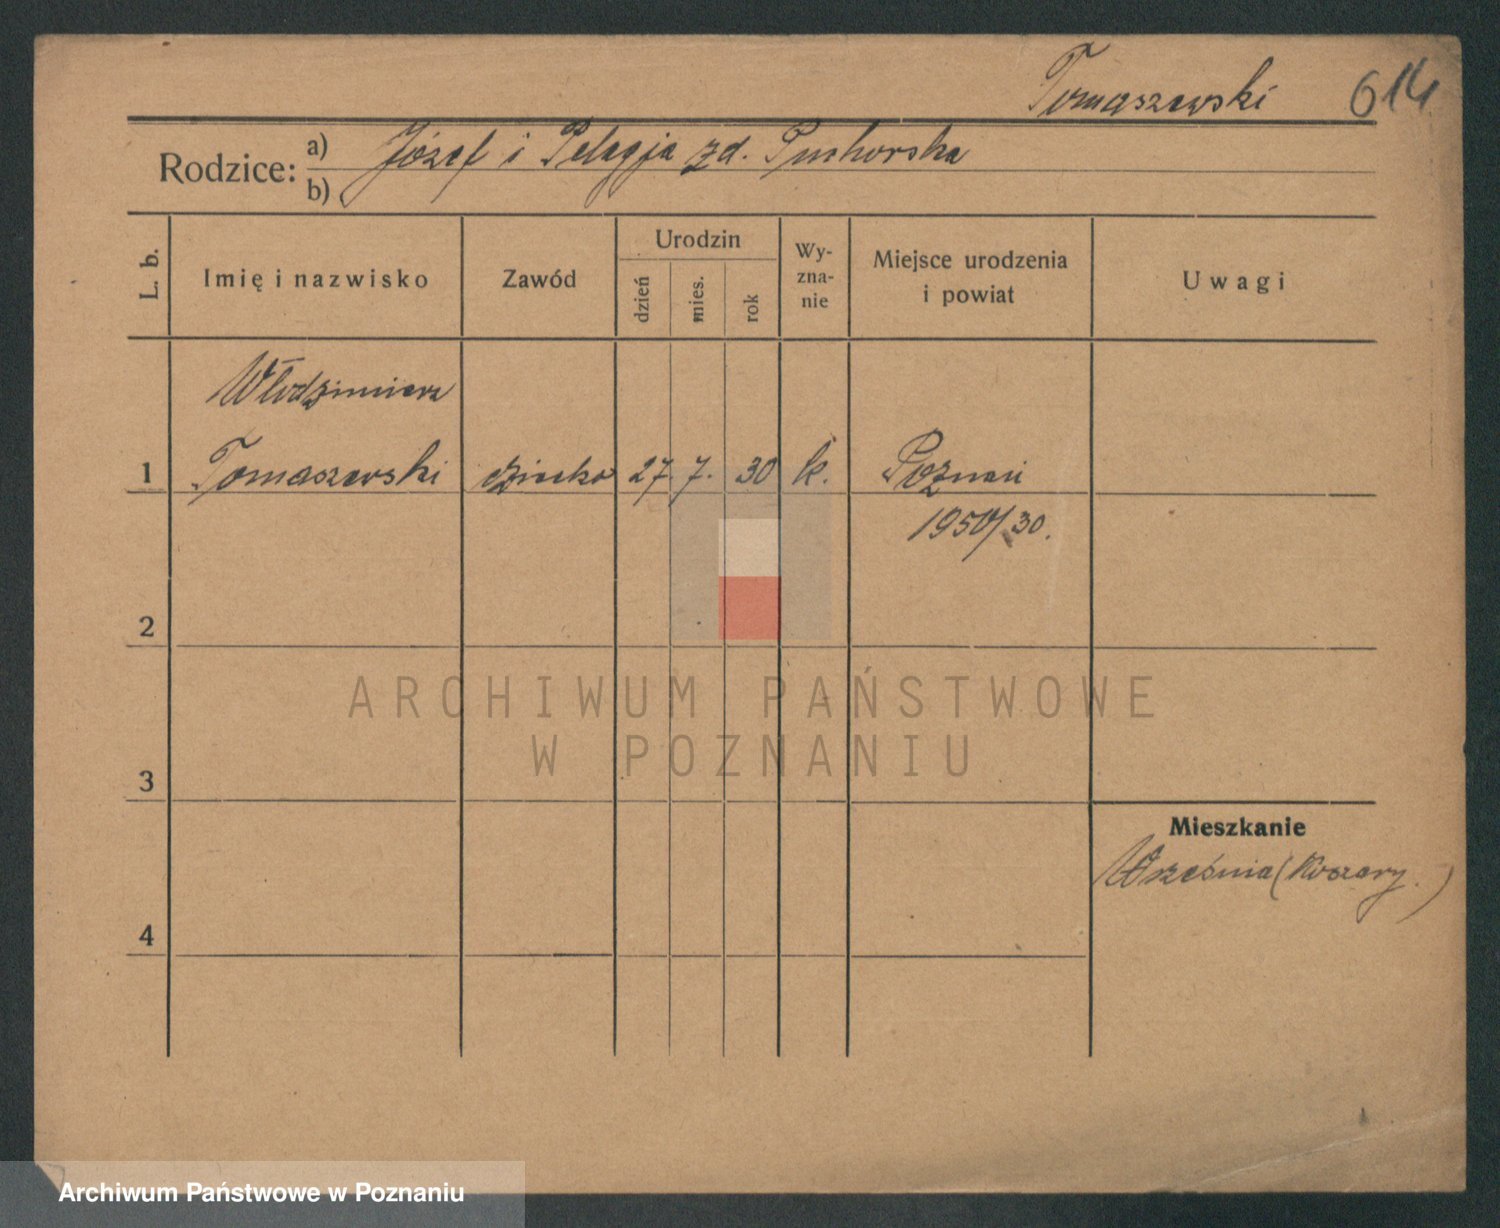 Tomaszewski 614
Rodzice: a) Józef i Pelagja zd. Puchorska
b)
L. b.
Imię i nazwisko
Zawód
Urodzin
dzień
mies.
rok
Wy-
zna-
nie
Miejsce urodzenia
i powiat
Uwagi
Włodzimierz
1 Tomaszewski dziecko 27. 7. 30 k. Poznań
1950/30.
2
ARCHIWUM PAŃSTWOWE
W POZNANIU
3
Mieszkanie
Września (Koszary.)
4
Archiwum Państwowe w Poznaniu